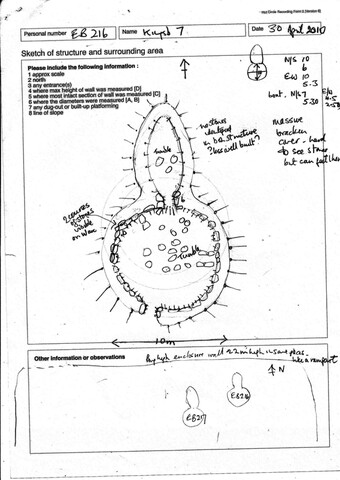 Hut Circle Recording Form 2 (Version 6)
Personal number EB 216 Name Date 30 April 2010
Sketch of structure and surrounding area
Please include the following information :
1 approx scale
2 north
3 any entrance(s)
4 where max height of wall was measured [D]
5 where most intact section of wall was measured [C]
6 where the diameters were measured [A, B]
7 any dug-out or built-up platforming
8 line of slope
N/S 10
6
E/W 10
5.3
5.30
massive
bracken
cover - hard
to see stones
but can feel them
no stones
in structure
? less well built?
rubble
2 courses
of stone
visible
on W arc
6
rubble
10m
Other information or observations
enclosure wall
like a rampart
N
EB216
EB217